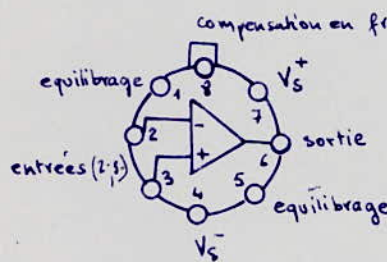 compensation en fr
equilibrage
Vs+
1
8
7
2
-
6
sortie
entrées (2.3.)
3
+
5
4
equilibrage
Vs-